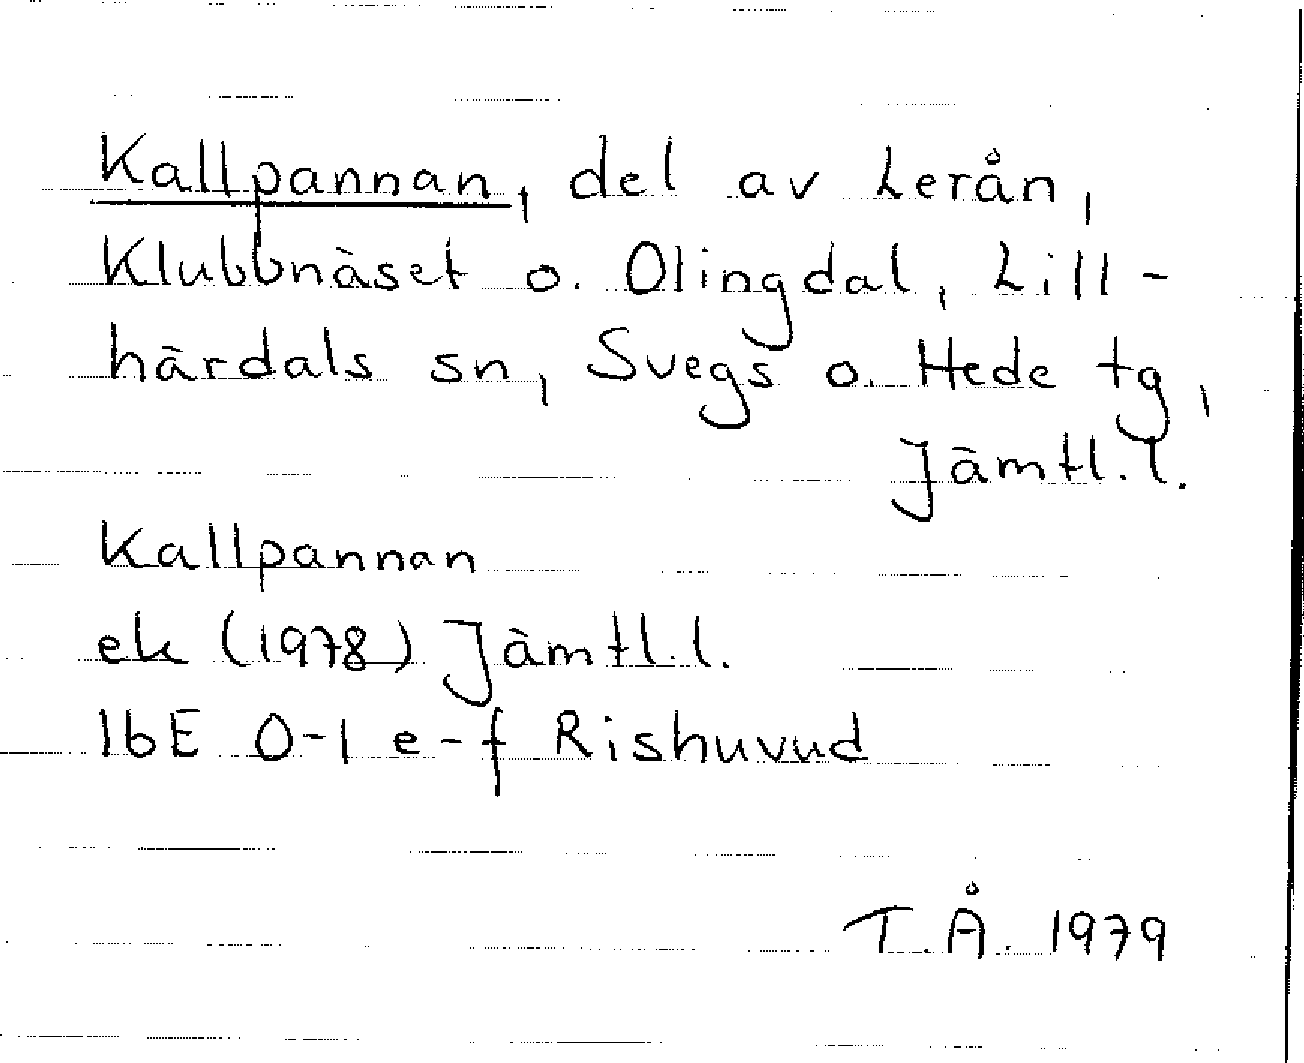 Kallpannan, del av Lerån,
Klubbnäset o. Olingdal, Lill-
härdals sn, Svegs o. Hede tg,
Jämtl. l.
Kallpannan
ek (1978) Jämtl. l.
16E 0-1 e-f Rishuvud
T.Å. 1979